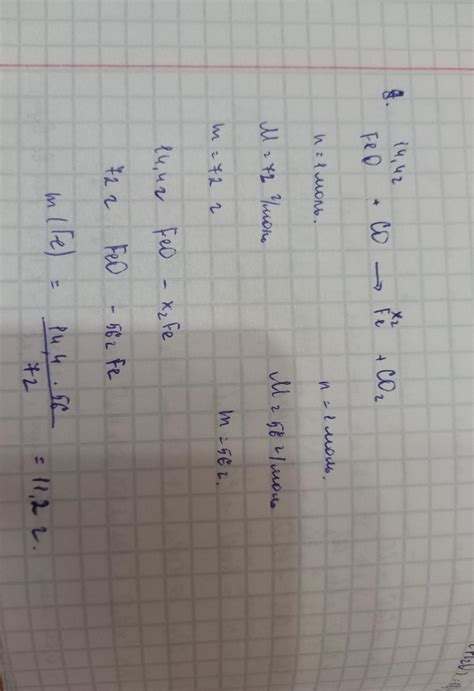 8.
14,4г xг
FeO + CO → Fe + CO2
n = 1 моль. n = 1 моль.
M = 72 г/моль M = 56 г/моль
m = 72 г m = 56 г.
14,4 г FeO – xг Fe
72 г FeO – 56 г Fe
m(Fe) = 14,4 · 56 / 72 = 11,2 г.